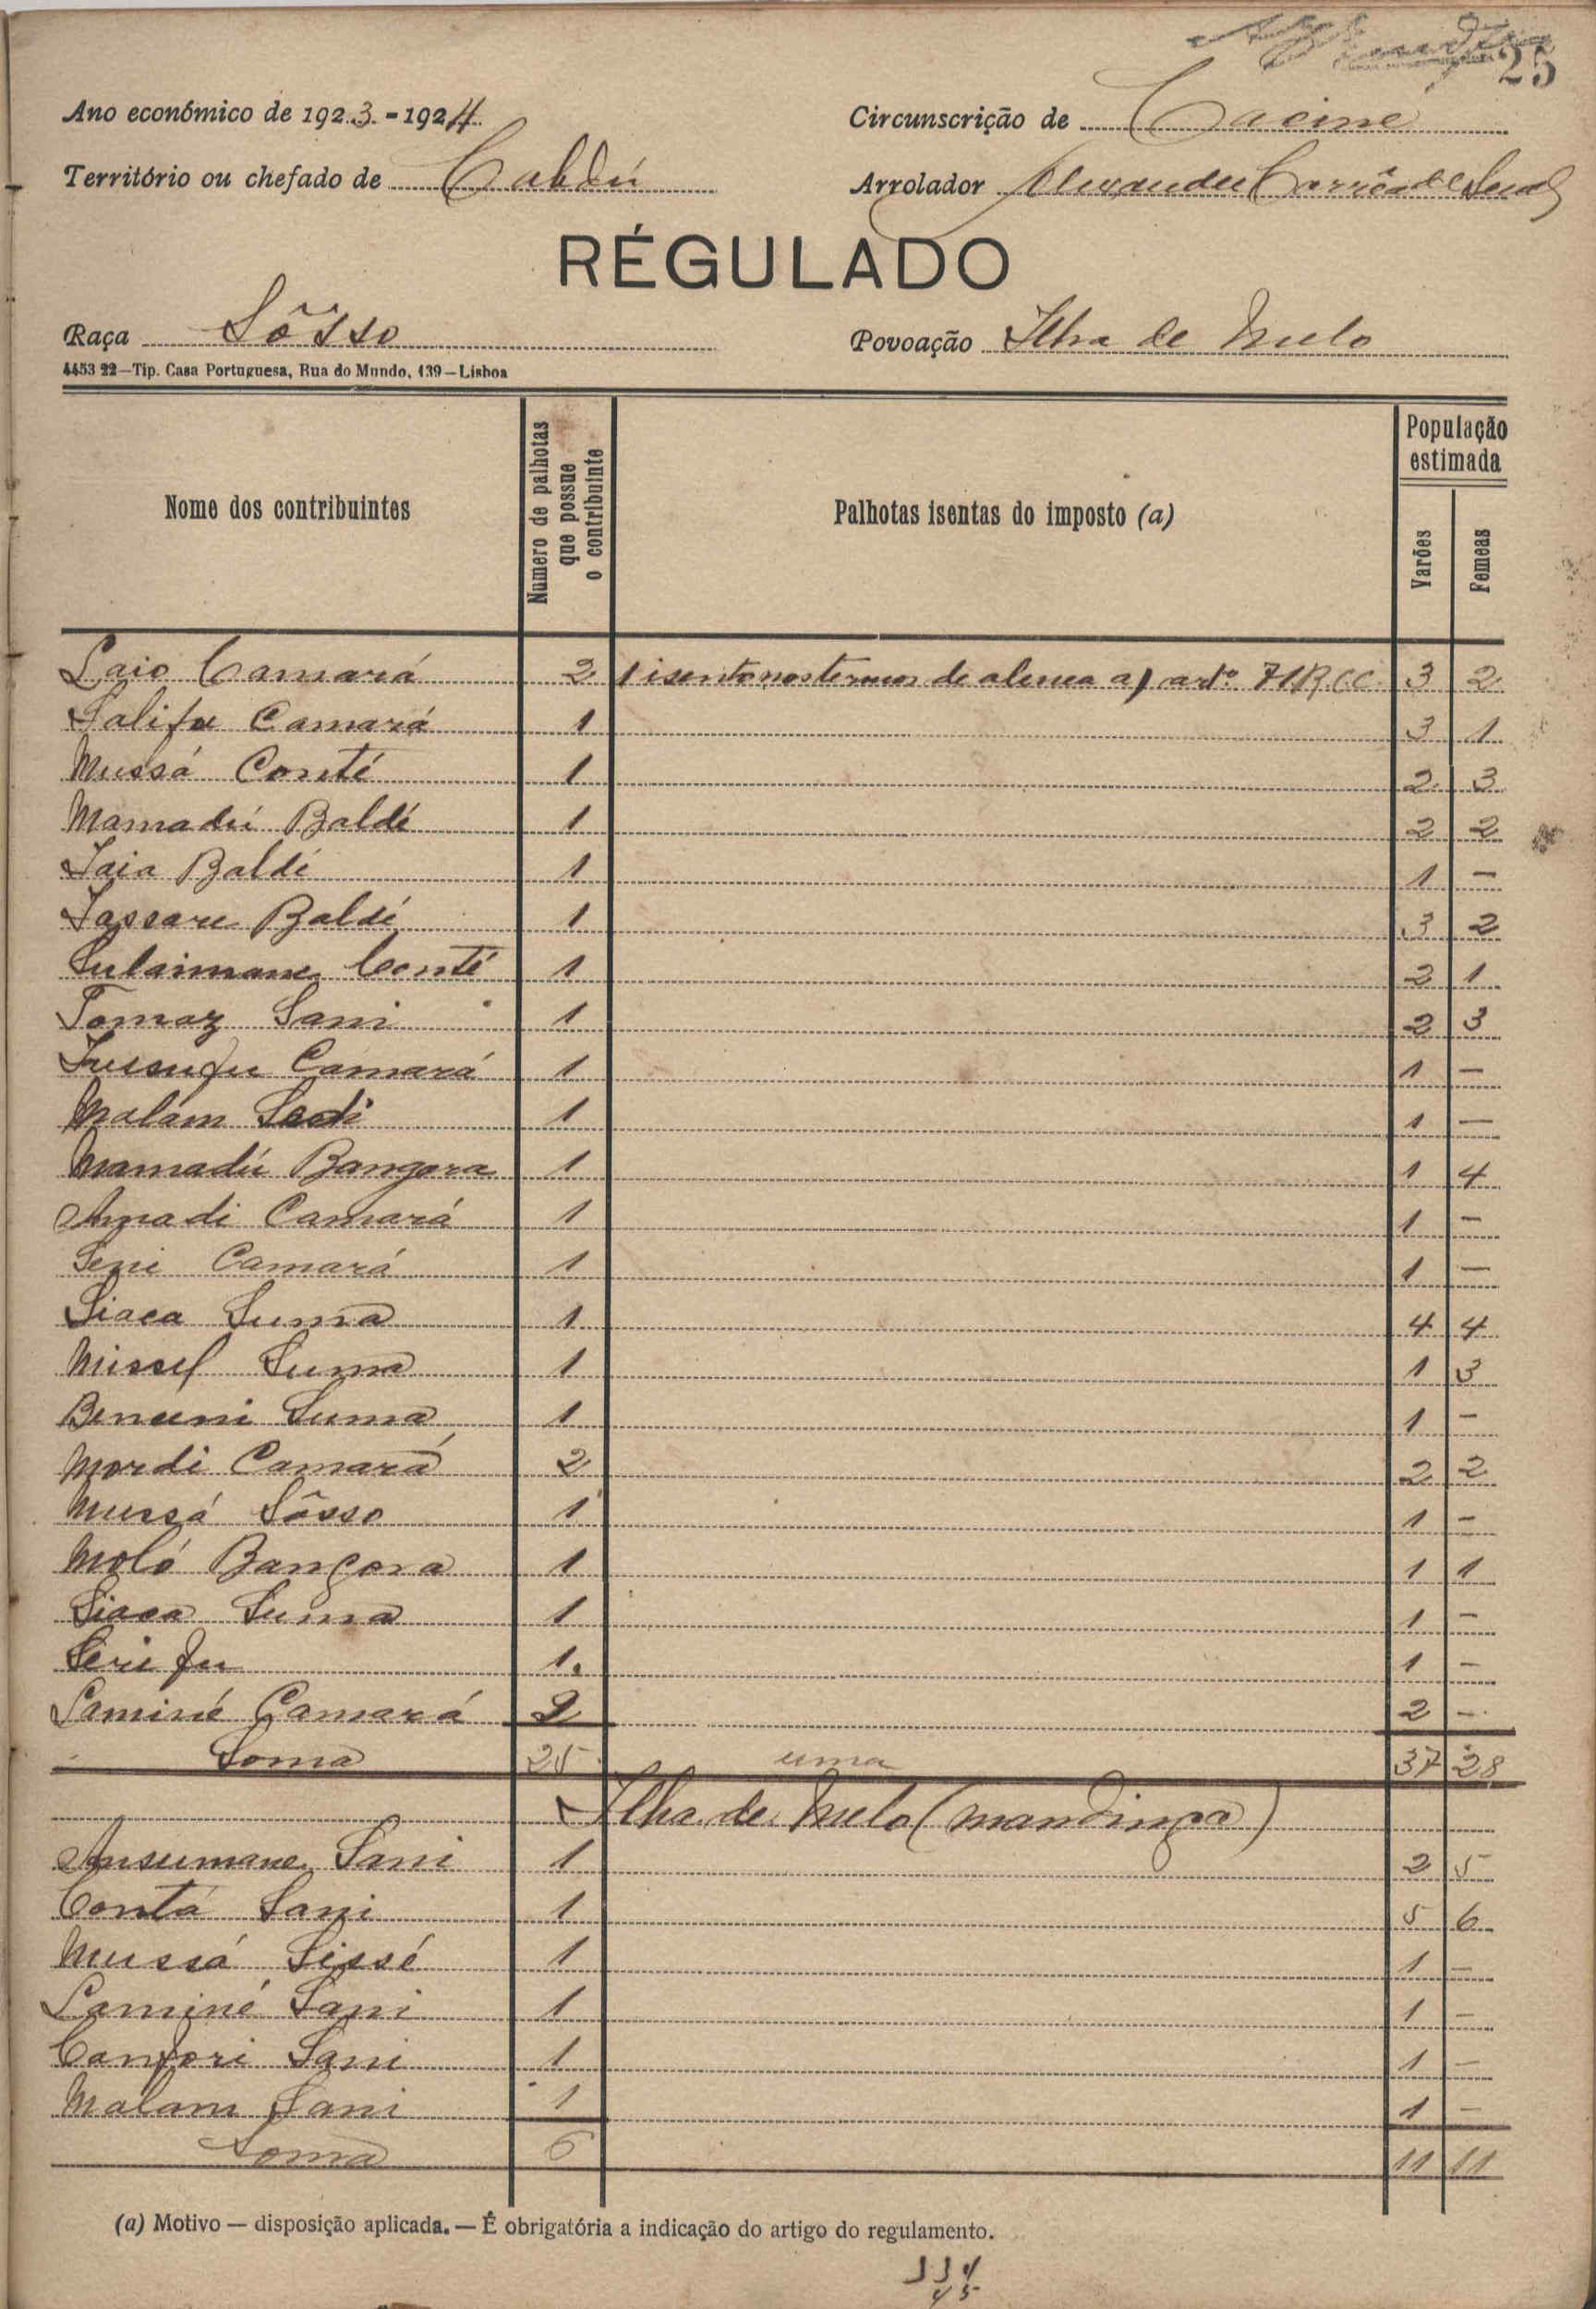 25
Ano económico de 1923-1924 Circunscrição de Cacine
Território ou chefado de Cabdú Arrolador Alexandre Corrêa de
RÉGULADO
Raça Sôsso Povoação Ilha de Melo
4453 22—Tip. Casa Portuguesa, Rua do Mundo, 139—Lisboa
Nome dos contribuintes Numero de palhotas que possue o contribuinte Palhotas isentas do imposto (a) População estimada Varões Femeas
Laio Camará 2 1 isento nos termos de alinea a) artº 71 R.C.C. 3 2
Salifu Camará 1 3 1
Mussá Conté 1 2 3
Mamadú Baldé 1 2 2
Iaia Baldé 1 1 —
Iassare Baldé 1 3 2
Sulaimane Conté 1 2 1
Tomaz Sani 1 2 3
Iussufu Camará 1 1 —
Malam 1 1 —
Mamadú Bangora 1 1 4
Amadi Camará 1 1 —
Seni Camará 1 1 —
Siaca Suma 1 4 4
Missel Suma 1 1 3
Suma 1 1 —
Mordi Camará 2 2 2
Mussá Sôsso 1 1 —
Moló Bangora 1 1 1
Siaca Suma 1 1 —
Serifu 1. 1 —
Laminé Camará 2 2 —
Soma 25 uma 37 28
Ilha de Melo (mandinga)
Ansumane Sani 1 2 5
Contá Sani 1 5 6
Mussá Sissé 1 1 —
Laminé Sani 1 1 —
Canfori Sani 1 1 —
Malam Sani 1 1 —
Soma 6 11 11
(a) Motivo — disposição aplicada. — É obrigatória a indicação do artigo do regulamento.